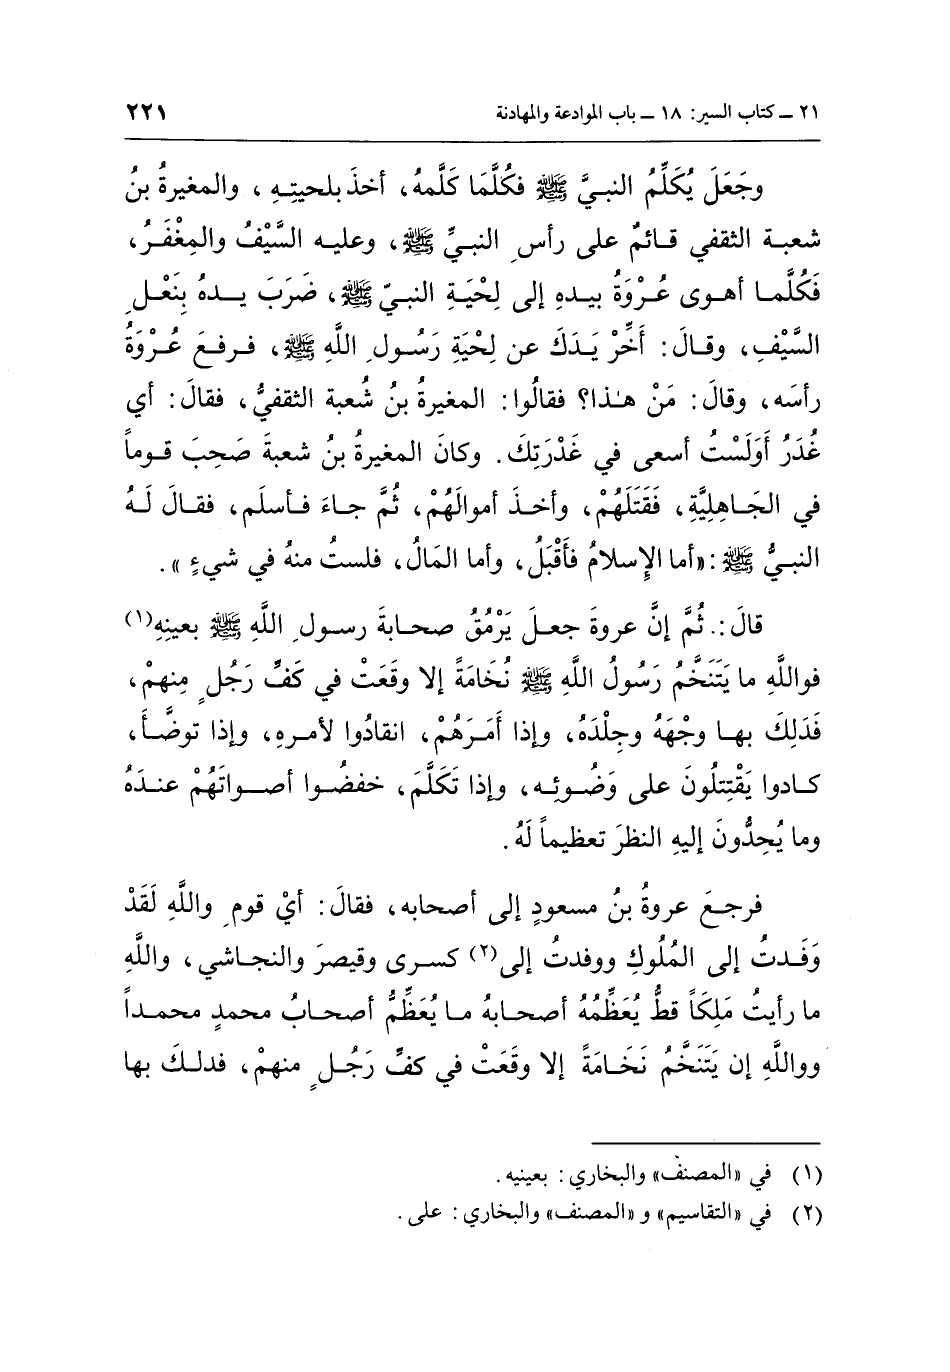 ٢١ ـ كتاب السير: ١٨ ـ باب الموادعة والمهادنة ٢٢١
وجَعَلَ يُكَلِّمُ النبيَّ ﷺ فكُلَّمَا كَلَّمهُ، أخذَ بلحيتِهِ، والمغيرةُ بنُ
شعبة الثقفي قائمٌ على رأسِ النبيِّ ﷺ، وعليه السَّيْفُ والمِغْفَرُ،
فَكُلَّما أهوى عُرْوَةُ بيدهِ إلى لِحْيَةِ النبيّ ﷺ، ضَرَبَ يدهُ بِنَعْلِ
السَّيْفِ، وقالَ: أَخِّرْ يَدَكَ عن لِحْيَةِ رَسُولِ اللَّهِ ﷺ، فرفعَ عُرْوَةُ
رأسَه، وقالَ: مَنْ هٰذا؟ فقالُوا: المغيرةُ بنُ شُعبة الثقفيُّ، فقالَ: أي
غُدَرُ أَوَلَسْتُ أسعى في غَدْرَتِكَ. وكانَ المغيرةُ بنُ شعبةَ صَحِبَ قوماً
في الجَاهِلِيَّةِ، فَقَتَلَهُمْ، وأخذَ أموالَهُمْ، ثُمَّ جاءَ فأسلَم، فقالَ لَهُ
النبيُّ ﷺ: «أما الإِسلامُ فأَقْبَلُ، وأما المَالُ، فلستُ منهُ في شيءٍ».
قالَ: ثُمَّ إنَّ عروةَ جعلَ يَرْمُقُ صحابةَ رسولِ اللَّهِ ﷺ بعينِهِ(١)
فواللَّهِ ما يَتَنَخَّمُ رَسُولُ اللَّهِ ﷺ نُخَامَةً إلا وقَعَتْ في كَفِّ رَجُلٍ مِنهمْ،
فَدَلِكَ بها وجْهَهُ وجِلْدَهُ، وإذا أَمَرَهُمْ، انقادُوا لأمرِهِ، وإذا توضَّأَ،
كادوا يَقْتِتلُونَ على وَضُوئِه، وإذا تَكَلَّمَ، خفضُوا أصواتَهُمْ عندَهُ
وما يُحِدُّونَ إليهِ النظرَ تعظيماً لَهُ.
فرجعَ عروةُ بنُ مسعودٍ إلى أصحابه، فقالَ: أيْ قومِ واللَّهِ لَقَدْ
وَفَدتُ إلى المُلُوكِ ووفدتُ إلى(٢) كسرى وقيصرَ والنجاشي، واللَّهِ
ما رأيتُ مَلِكَاً قطُّ يُعَظِّمُهُ أصحابهُ ما يُعَظِّمُ أصحابُ محمدٍ محمداً
وواللَّهِ إن يَتَنَخَّمُ نَخَامَةً إلا وقَعَتْ في كفِّ رَجُلٍ منهمْ، فدلكَ بها
(١) في «المصنف» والبخاري: بعينيه.
(٢) في «التقاسيم» و«المصنف» والبخاري: على.